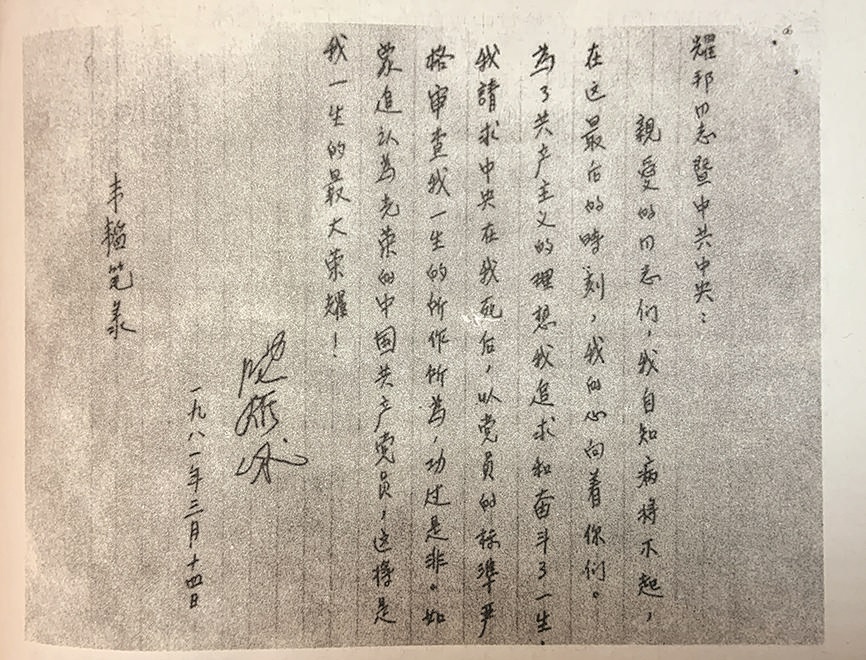 耀邦同志暨中共中央：
親爱的同志们，我自知病将不起，
在这最后的時刻，我的心向着你们。
為了共产主义的理想我追求和奋斗了一生．
我請求中央在我死后，以党员的标準严
格审查我一生的所作所為，功过是非。如
蒙追认為光荣的中国共产党员，这将是
我一生的最大荣耀！
沈雁冰
一九八一年三月十四日
韦韬笔录